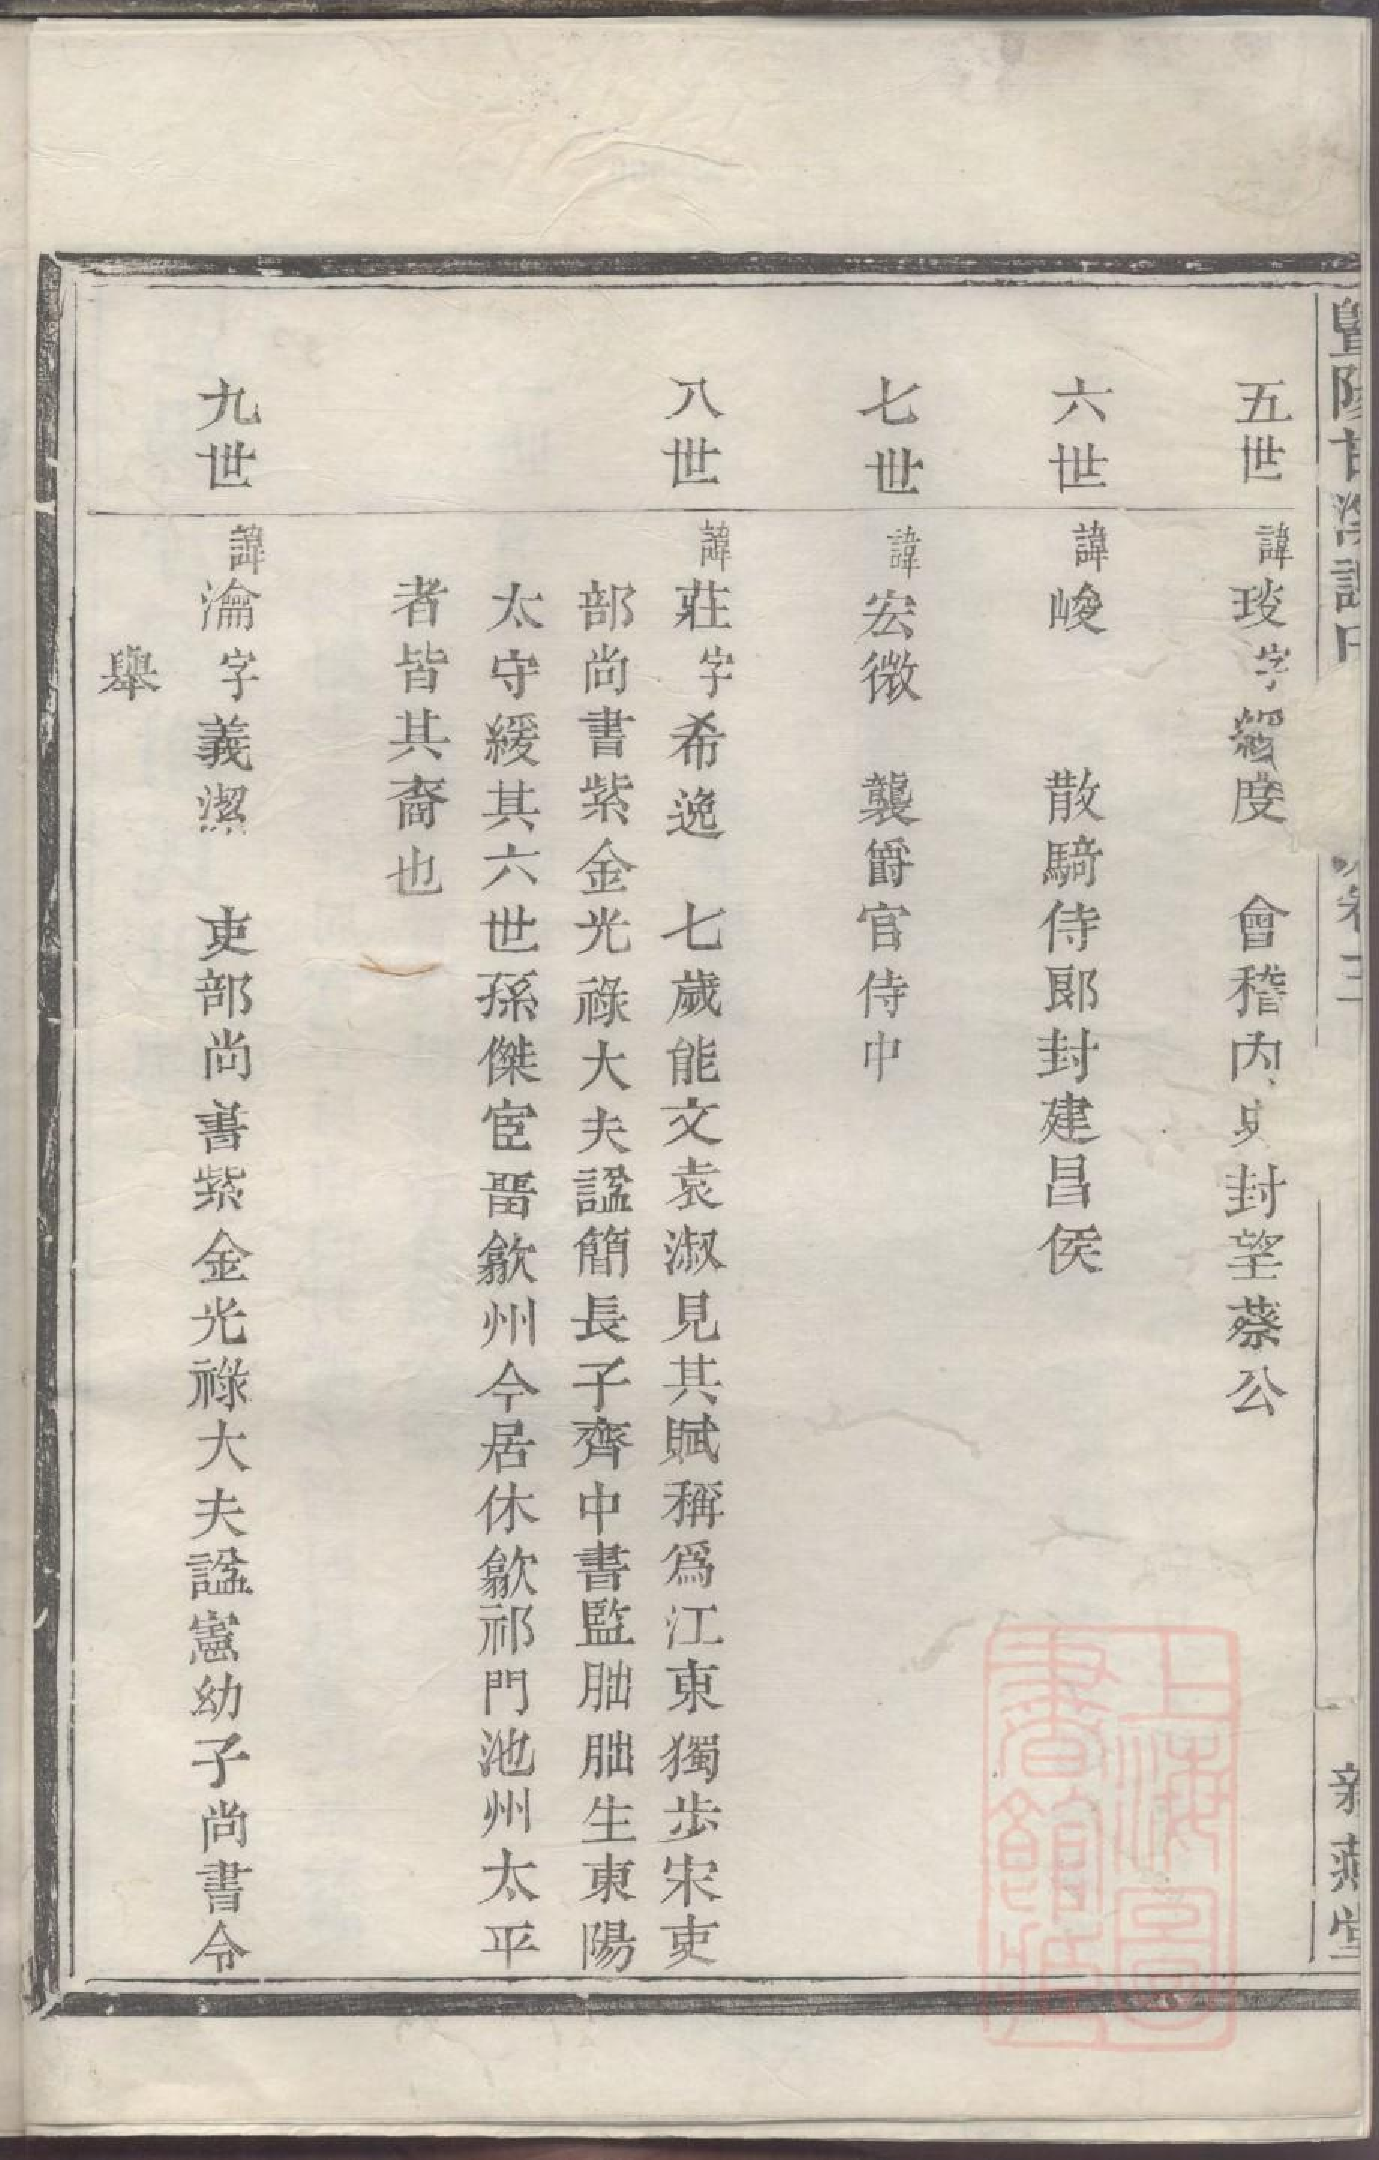 五世 諱琰字瑗度 會稽內史封望蔡公
六世 諱峻 散騎侍郎封建昌侯
七世 諱宏微 襲爵官侍中
八世 諱莊字希逸 七歲能文袁淑見其賦稱爲江東獨步宋吏
部尚書紫金光祿大夫諡簡長子齊中書監朏朏生東陽
太守緩其六世孫傑宦畱歙州今居休歙祁門池州太平
者皆其裔也
九世 諱瀹字義潔 吏部尚書紫金光祿大夫諡憲幼子尚書令
舉
暨陽甘溪謝氏 卷三
新燕堂
上海圖書館藏